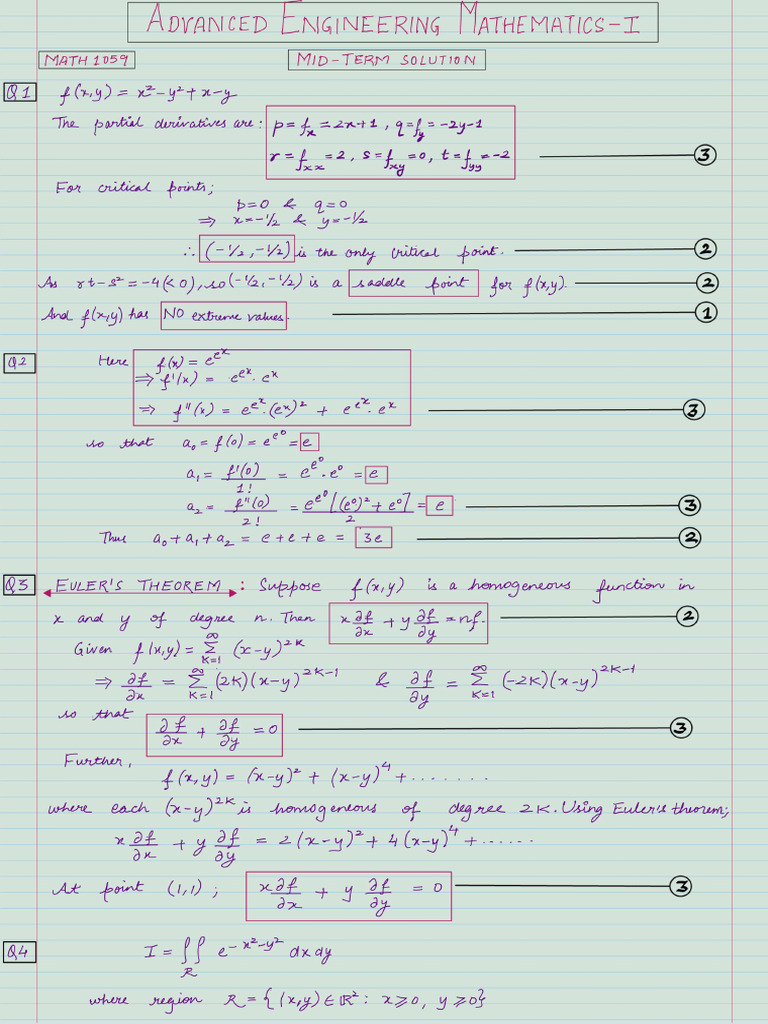 ADVANCED ENGINEERING MATHEMATICS-I
MATH 1059 MID-TERM SOLUTION
Q1 f(x,y) = x²-y²+x-y
The partial derivatives are: p = f_x = 2x+1, q = f_y = -2y-1
r = f_xx = 2, s = f_xy = 0, t = f_yy = -2 ③
For critical points;
p=0 & q=0
⇒ x=-1/2 & y=-1/2
∴ (-1/2, -1/2) is the only critical point. ②
As rt-s² = -4(<0), so (-1/2, -1/2) is a saddle point for f(x,y). ②
And f(x,y) has NO extreme values. ①
Q2 Here f(x) = e^{e^x}
⇒ f'(x) = e^{e^x}·e^x
⇒ f''(x) = e^{e^x}·(e^x)² + e^{e^x}·e^x ③
so that a₀ = f(0) = e^{e^0} = e
a₁ = f'(0)/1! = e^{e^0}·e^0 = e
a₂ = f''(0)/2! = e^{e^0}[(e^0)² + e^0]/2 = e ③
Thus a₀+a₁+a₂ = e+e+e = 3e ②
Q3 EULER'S THEOREM : Suppose f(x,y) is a homogeneous function in
x and y of degree n. Then x ∂f/∂x + y ∂f/∂y = nf. ②
Given f(x,y) = ∑_{K=1}^{∞} (x-y)^{2K}
⇒ ∂f/∂x = ∑_{K=1}^{∞} (2K)(x-y)^{2K-1} & ∂f/∂y = ∑_{K=1}^{∞} (-2K)(x-y)^{2K-1}
so that ∂f/∂x + ∂f/∂y = 0 ③
Further,
f(x,y) = (x-y)² + (x-y)⁴ + .......
where each (x-y)^{2K} is homogeneous of degree 2K. Using Euler's theorem;
x ∂f/∂x + y ∂f/∂y = 2(x-y)² + 4(x-y)⁴ + ......
At point (1,1) ; x ∂f/∂x + y ∂f/∂y = 0 ③
Q4 I = ∬_R e^{-x²-y²} dx dy
where region R = {(x,y) ∈ ℝ² : x⩾0, y⩾0}